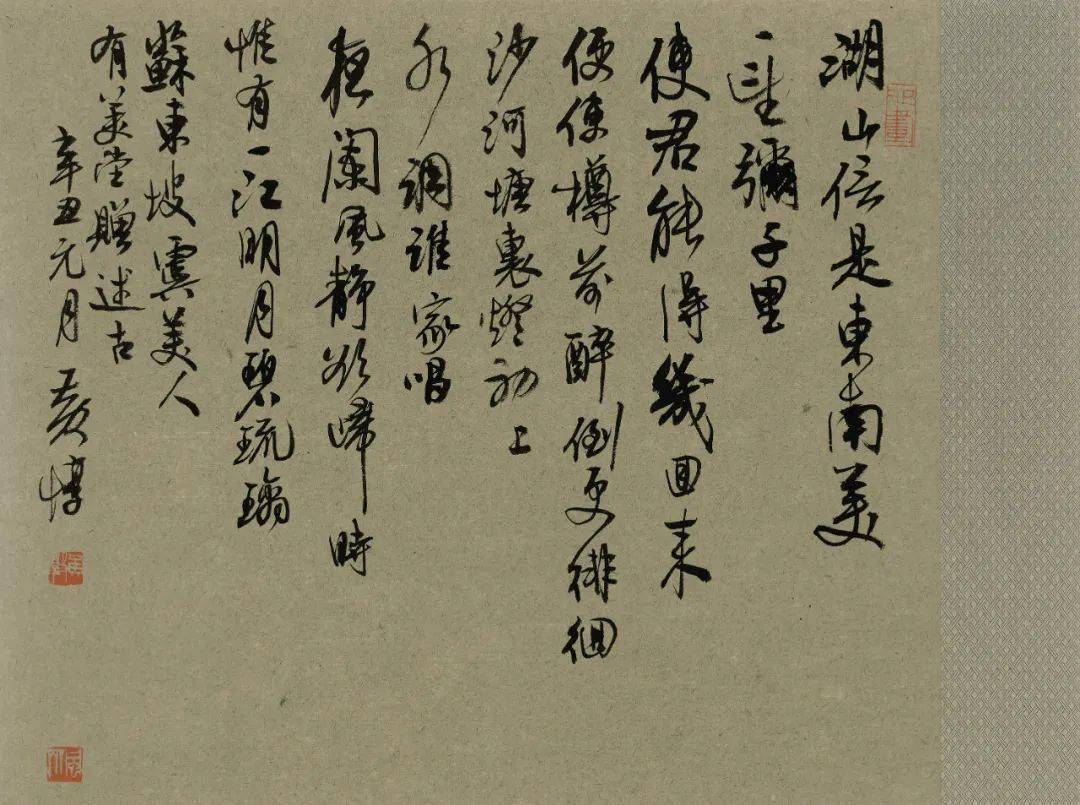 湖山信是東南美
一望彌千里
使君能得幾回来
便使樽前醉倒更徘徊
沙河塘裏燈初上
水調誰家唱
夜闌風静欲歸時
惟有一江明月碧琉璃
蘇東坡虞美人
有美堂贈述古
辛丑元月 黄惇